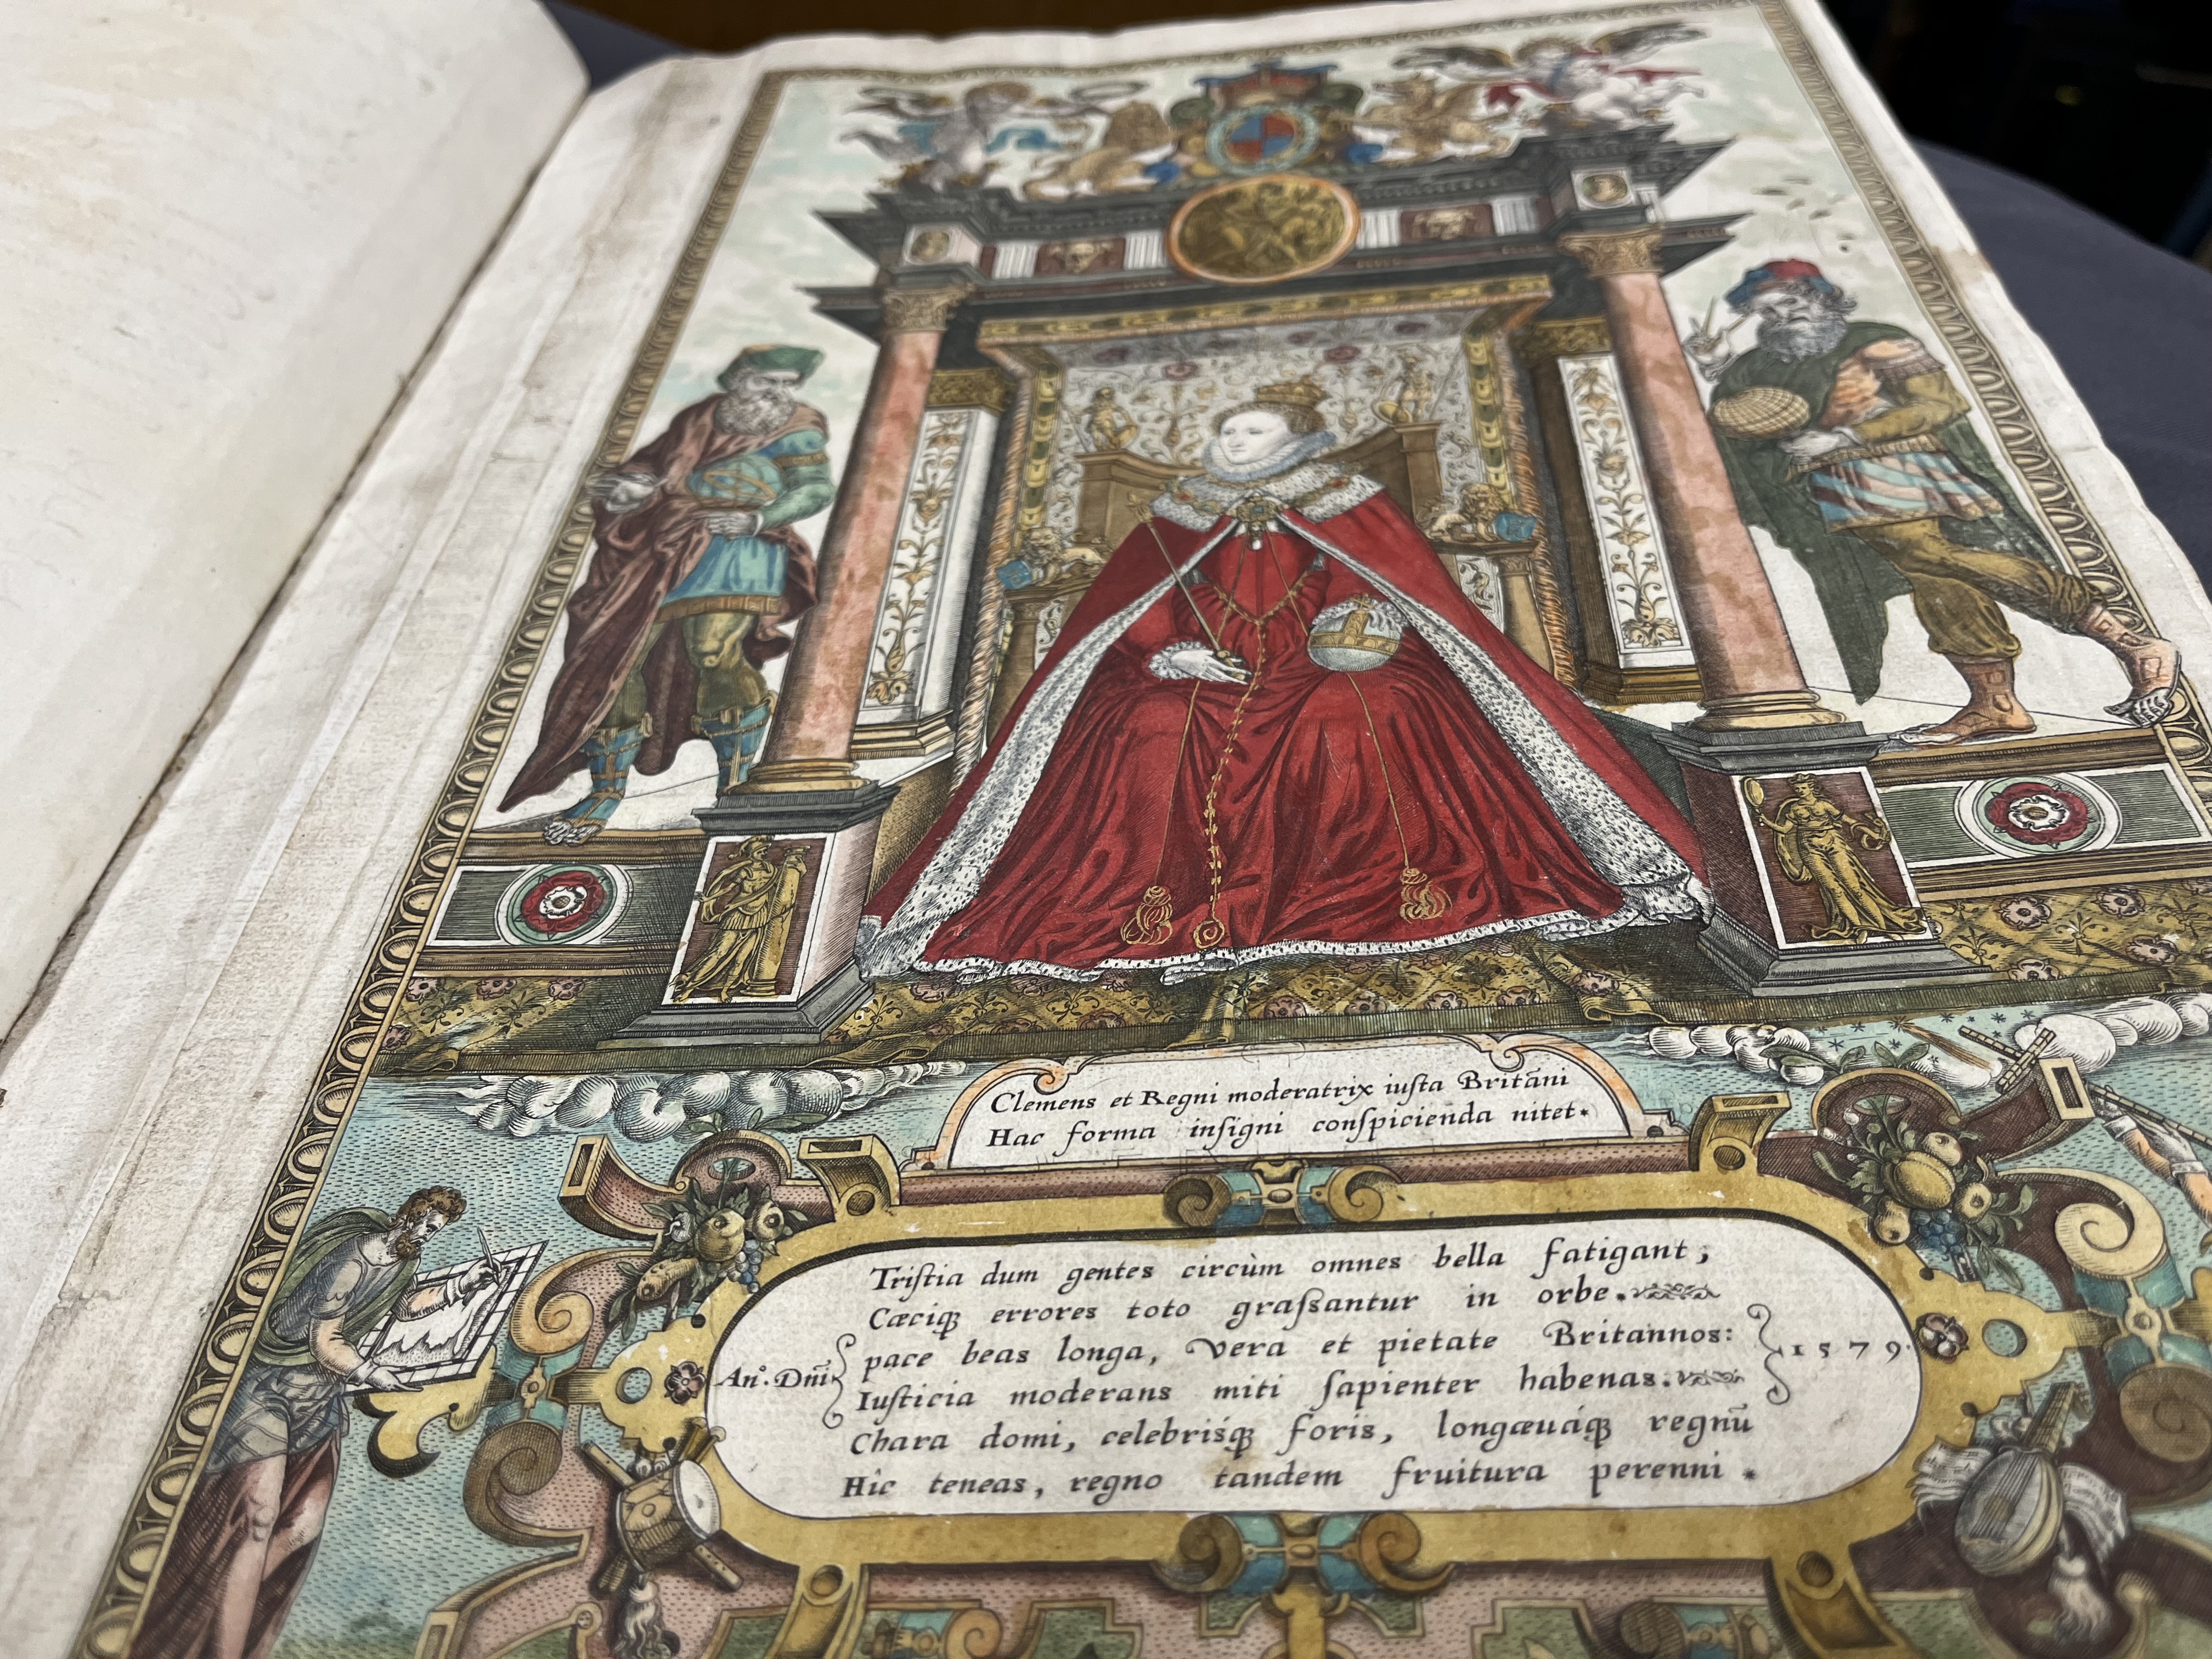 Clemens et Regni moderatrix iuſta Britāni
Hac forma inſigni conſpicienda nitet.
Triſtia dum gentes circùm omnes bella fatigant;
Cæciqꝫ errores toto graſsantur in orbe.
pace beas longa, vera et pietate Britannos:
An̊. Dñi 1579.
Iuſticia moderans miti ſapienter habenas.
Chara domi, celebriśqꝫ foris, longæuáqꝫ regnū
Hic teneas, regno tandem fruitura perenni.